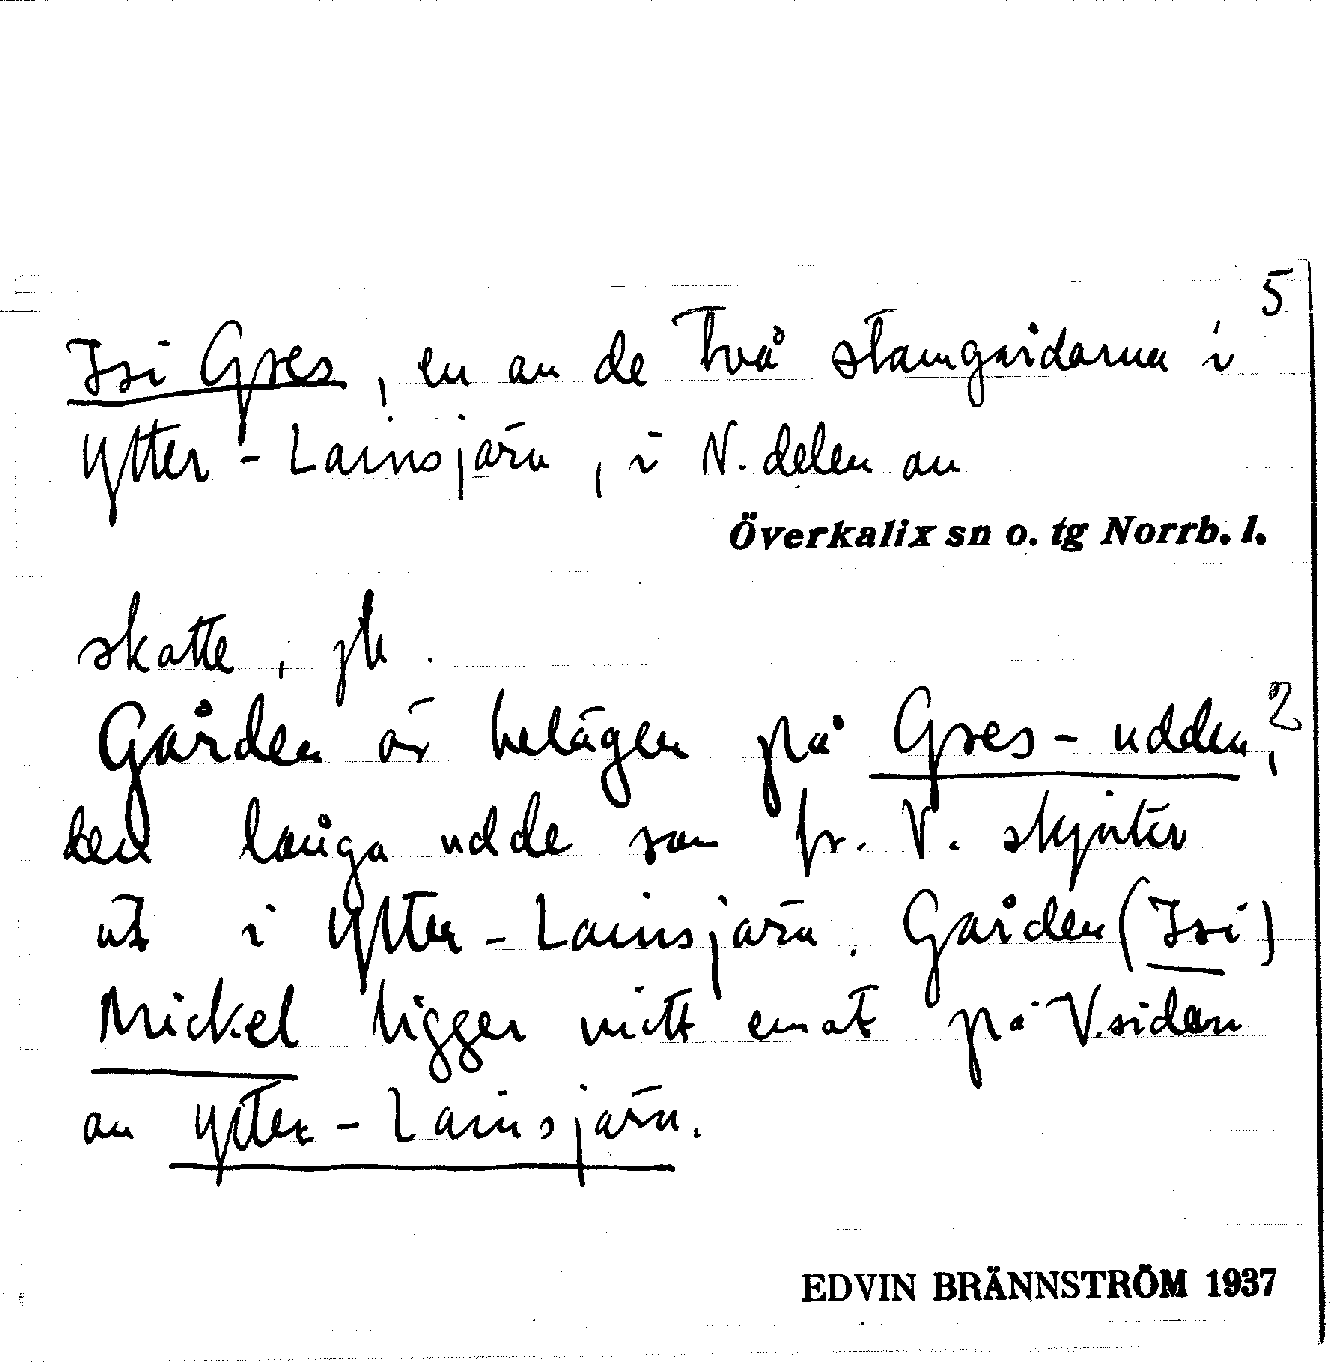 5
Isi Gres, en av de två stamgårdarna i
Ytter-Lainsjärv, i N. delen av
Överkalix sn o. tg Norrb. l.
skatte,
Gården är belägen på Gres-udden, ?
den långa udde som fr. V. skjuter
ut i Ytter-Lainsjärv. Gården (Isi)
Mickel ligger mitt emot på V.sidan
av Ytter-Lainsjärv.
EDVIN BRÄNNSTRÖM 1937